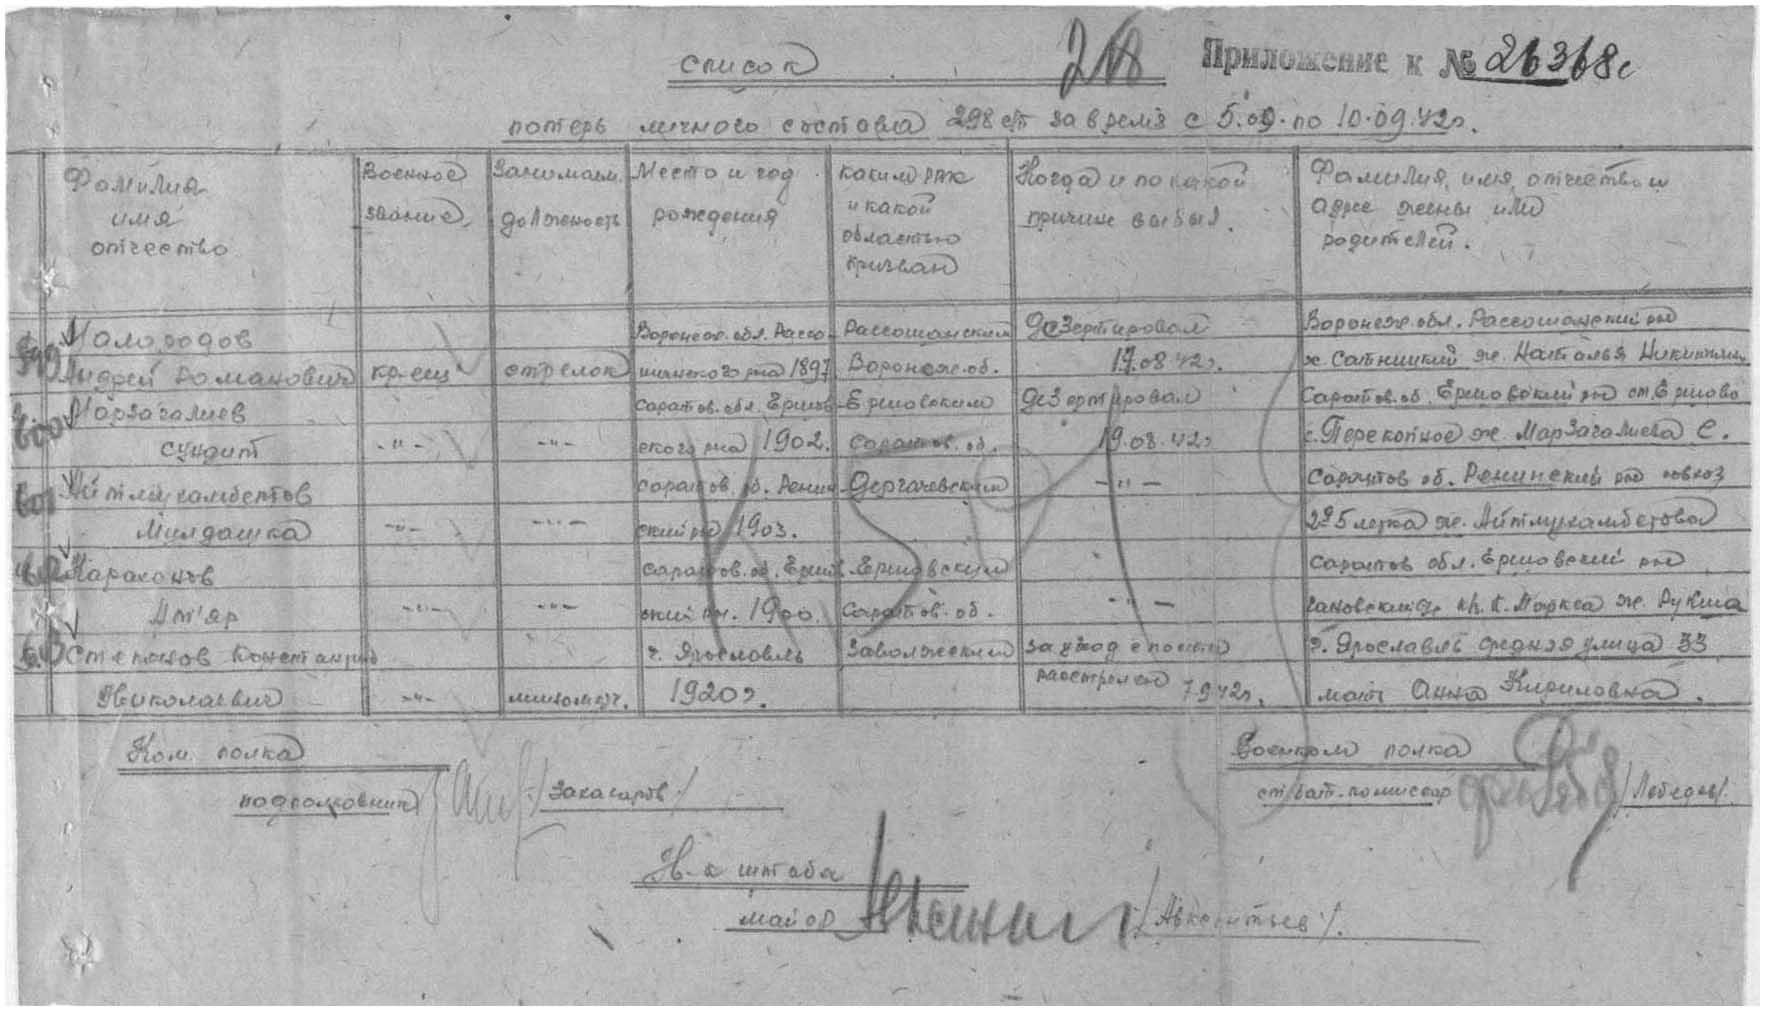 список 218 Приложение к № 26368с
потерь личного состава 298 сп за время с 5.09. по 10.09.42г.
Фамилия имя отчество
Военное звание
Занимаем. должность
Место и год рождения
каким РВК и какой областью призван
Когда и по какой причине выбыл.
Фамилия, имя, отчество и адрс жены или родителей.
599 Воронеж. обл. Россо- Россошанским Дезертировал Воронеж. обл. Россошанский р-н
Андрей Романович кр-ец стрелок шинского р-на 1897 Воронеж. об. 17.08.42г. х. ж. Наталья
600 Марзагалиев Саратов. обл. Ершов- Ершовским Дезертировал Саратов. об. Ершовский р-н ст. Ершово
сундит -"- -"- ского р-на 1902. Саратов. об. 19.08.42г с. Перекопное ж. Марзагалиева С.
601 Айтмухамбетов Саратов. об. Дергачевским -"- Саратов об. р-н совхоз
Милдашка -"- -"- ский р-н 1903. ж. Айтмухамбетова
602 Саратов. об. Ершов Ершовским Саратов обл. Ершовский р-н
-"- -"- ский р-н. 1900. Саратов. об. -"- К. Маркса ж.
603 Степанов Константин г. Ярославль Заволжским за уход с поста г. Ярославль средняя улица 33
Николаевич -"- минометч. 1920г. расстрелян 7.9.42г. мать Анна Кириловна.
Ком. полка
Военком полка
подполковник
ст. бат. комиссар /Лебедев/.
Н-к штаба
майор /Авксентьев/.